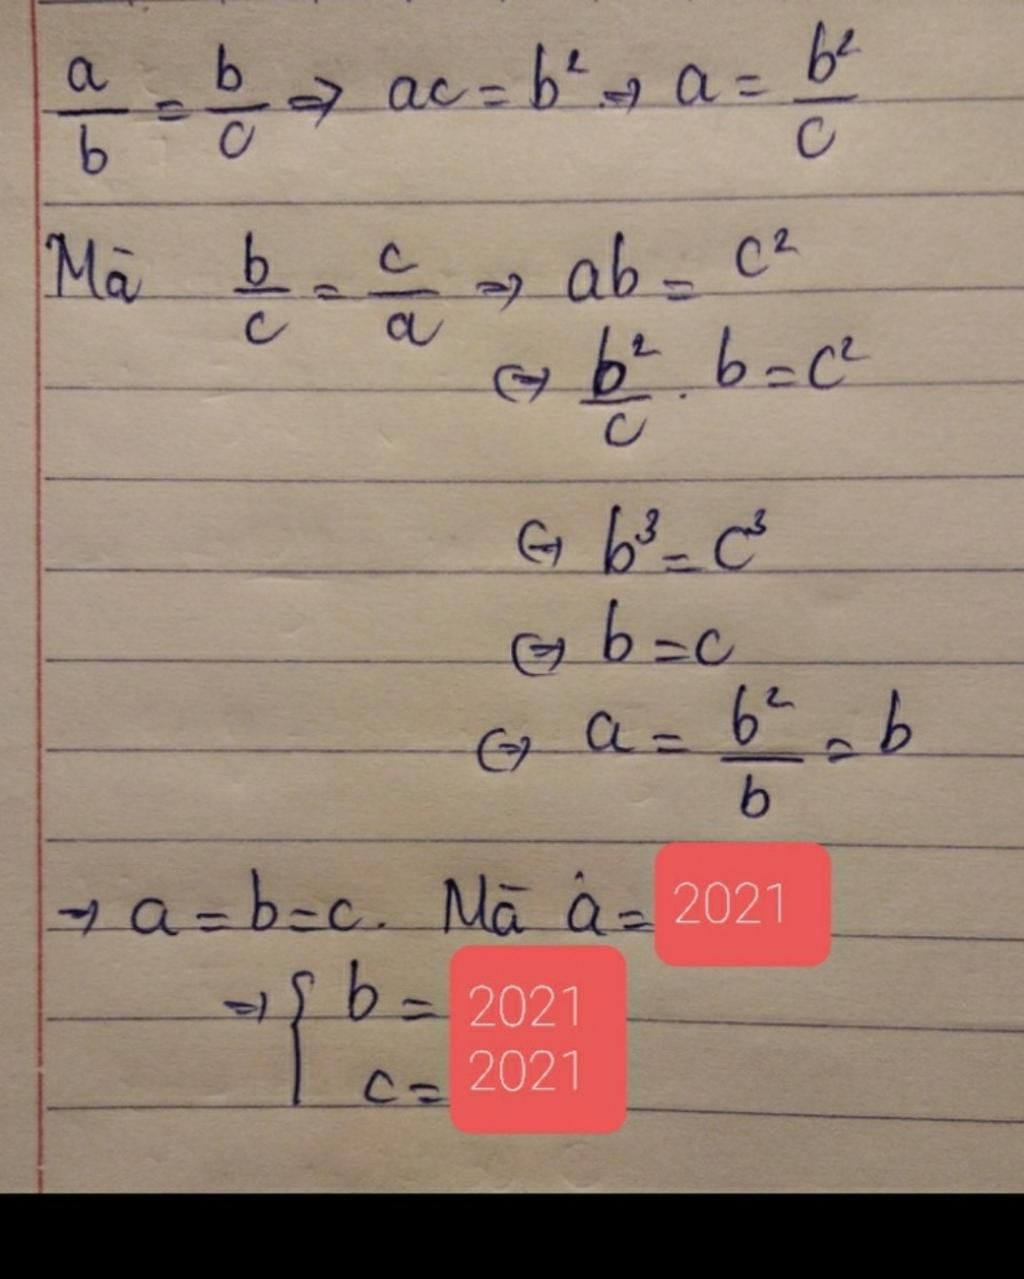 a/b = b/c ⇒ ac = b² ⇒ a = b²/c
Mà b/c = c/a ⇒ ab = c²
⇔ b²/c . b = c²
⇔ b³ = c³
⇔ b = c
⇔ a = b²/b = b
⇒ a = b = c. Mà a = 2021
⇒ { b = 2021
c = 2021